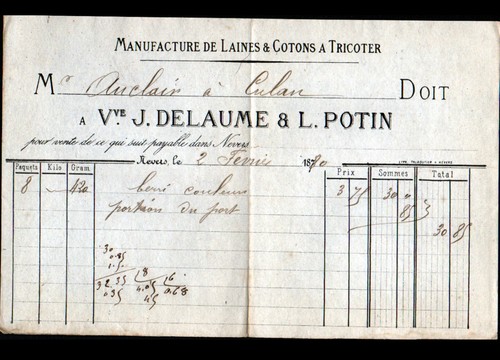 MANUFACTURE DE LAINES & COTONS A TRICOTER
Mr Auclair à Culan DOIT
A Vve J. DELAUME & L. POTIN
pour vente de ce qui suit payable dans Nevers
Nevers, le 2 Février 1880
Paquets Kilo Gram. Prix Sommes Total
8 420 couleurs 3 75 30 "
portion du port 85
30 85
30
0.85
1.50
32.35 18 16
0.35 4.05 0.68
45